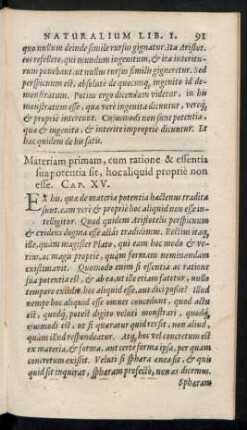 NATURALIUM LIB. I. 91
quo nullum deinde simile rursus gignatur. Ita Aristot.
eos refellere, qui mundum ingenitum, & ita interitu-
rum putabant, ut nullum rursus similis gigneretur. Sed
perspicuum est, absolutè de quocunq, ingenito id de
monstratum. Potius ergo dicendum videtur, in his
monstratum esse, quæ verè ingenita dicuntur, vereq́,
& propriè intereunt. Cuiusmodi non sunt potentia,
quæ & ingenita, & interire impropriè dicuntur. Et
hæc quidem de his satis.
Materiam primam, cum ratione & essentia
sua potentia sit, hoc aliquid proprie non
esse. CAP. XV.
EX his, quæ de materiæ potentia hactenus tradita
sunt, eam verè & propriè hoc aliquid non esse in-
telligitur. Quod quidem Aristotelis perspicuum
& evidens dogma esse aliàs tradidimus. Rectius itaq,
ille, quàm magister Plato, qui eam hoc modo & ve-
rius, ac magis propriè, quàm formam nominandam
existimavit. Quomodo enim si essentia ac ratione
sua potentia est, & ab ea, ut ille etiam fatetur, nullo
tempore excidit, hoc aliquid esse, aut dici posit? Illud
nempe hoc aliquid esse omnes concedunt, quod actu
est, quodq́, potest digito veluti monstrari, quodq́,
eiusmodi est, ut si quæratur quid res sit, non aliud,
quàm illud respondeatur. Atq, hoc vel concretum est
ex materia, & forma, aut certe forma ipsa, per quam
concretum existit. Veluti si sphæra ænea sit, & quis
quid sit inquirat, sphæram profectò, non æs dicemus.
Sphæram